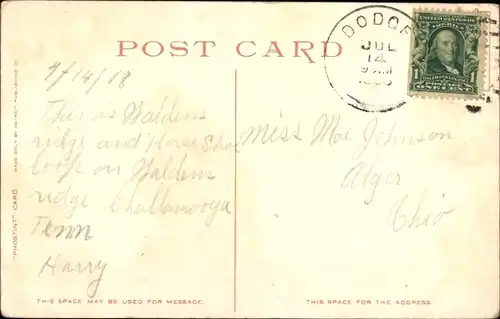 POST CARD
DODGE
JUL
14
9 AM
1908
UNITED STATES OF AMERICA
1
ONE CENT
7/14/08
This is Waldens
ridge and Horse Shoe
loop on Waldens
ridge Challanooga
Tenn
Harry
Miss Mae Johnson
Alger
Ohio
"PHOSTINT" CARD
MADE ONLY BY DETROIT PUBLISHING CO.
THIS SPACE MAY BE USED FOR MESSAGE.
THIS SPACE IS FOR THE ADDRESS.